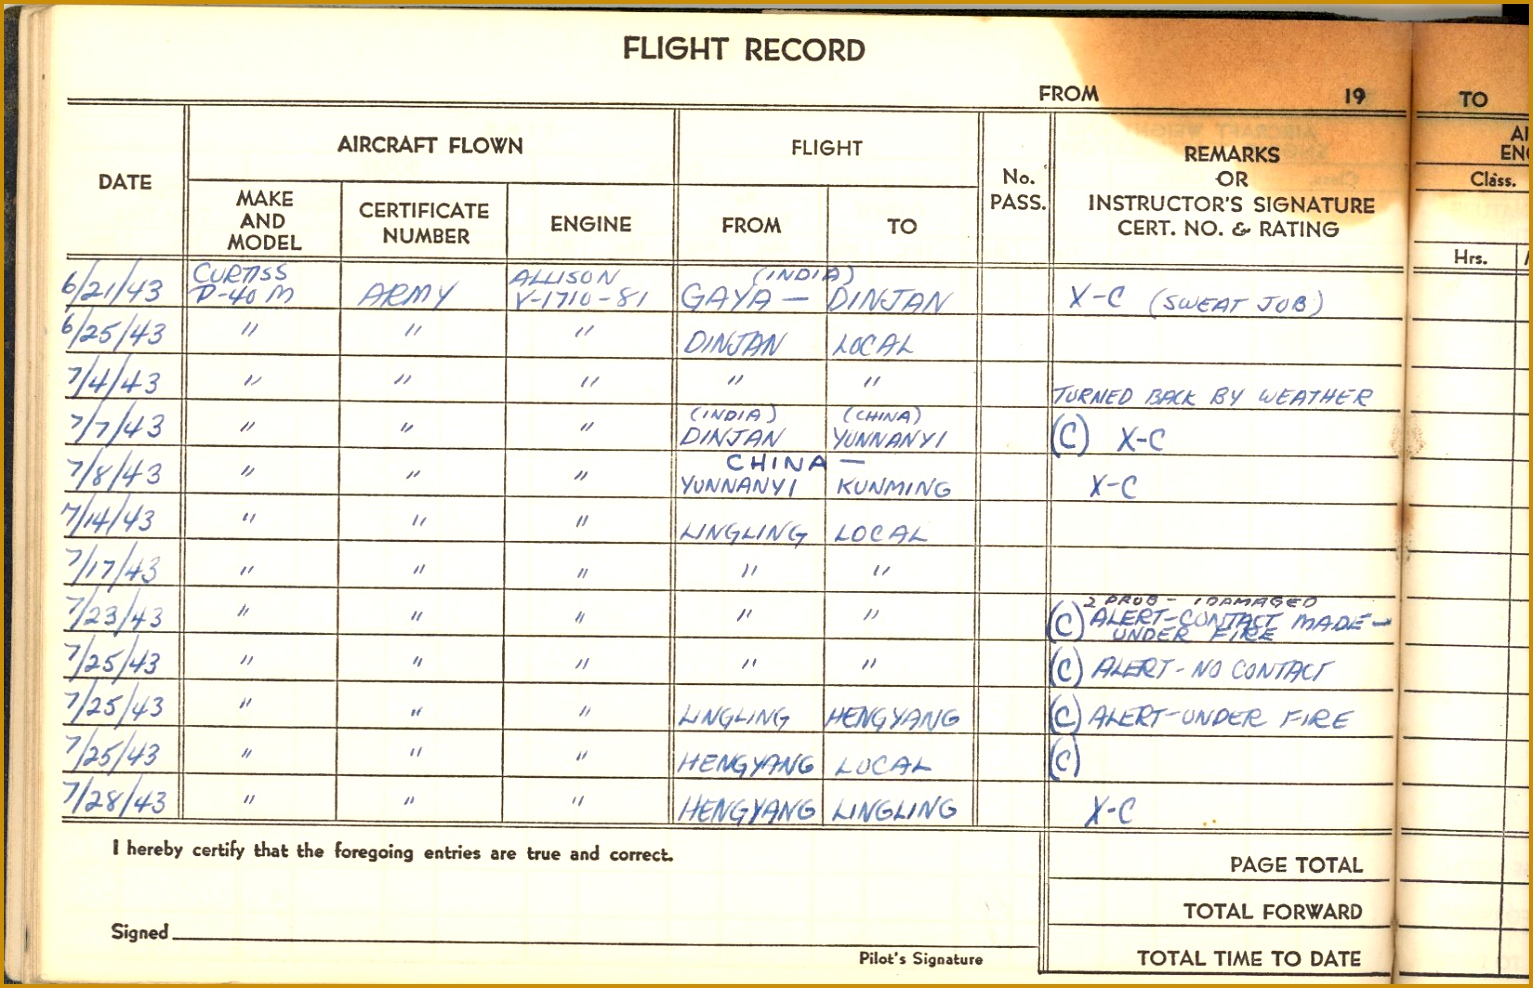 FLIGHT RECORD
FROM 19 TO
DATE
AIRCRAFT FLOWN
FLIGHT
No. PASS.
REMARKS
OR
INSTRUCTOR'S SIGNATURE
CERT. NO. & RATING
MAKE
AND
MODEL
CERTIFICATE
NUMBER
ENGINE
FROM
TO
Class.
Hrs.
6/21/43 CURTISS P-40 M ARMY ALLISON V-1710-81 (INDIA) GAYA — DINJAN X-C (SWEAT JOB)
6/25/43 " " " DINJAN LOCAL
7/4/43 " " " " " TURNED BACK BY WEATHER
7/7/43 " " " (INDIA) DINJAN (CHINA) YUNNANYI (C) X-C
7/8/43 " " " CHINA — YUNNANYI KUNMING X-C
7/14/43 " " " LINGLING LOCAL
7/17/43 " " " " "
7/23/43 " " " " " 2 PROB - 1 DAMAGED (C) ALERT-CONTACT MADE- UNDER FIRE
7/25/43 " " " " " (C) ALERT-NO CONTACT
7/25/43 " " " LINGLING HENGYANG (C) ALERT-UNDER FIRE
7/25/43 " " " HENGYANG LOCAL (C)
7/28/43 " " " HENGYANG LINGLING X-C
I hereby certify that the foregoing entries are true and correct.
PAGE TOTAL
TOTAL FORWARD
Signed
Pilot's Signature
TOTAL TIME TO DATE